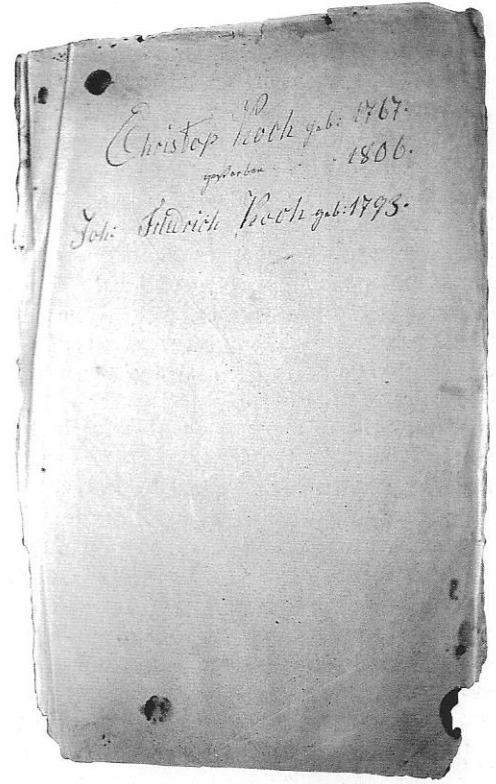 Christop Koch geb: 1767.
gestorben . . . . 1806.
Joh: Friedrich Koch geb: 1793.